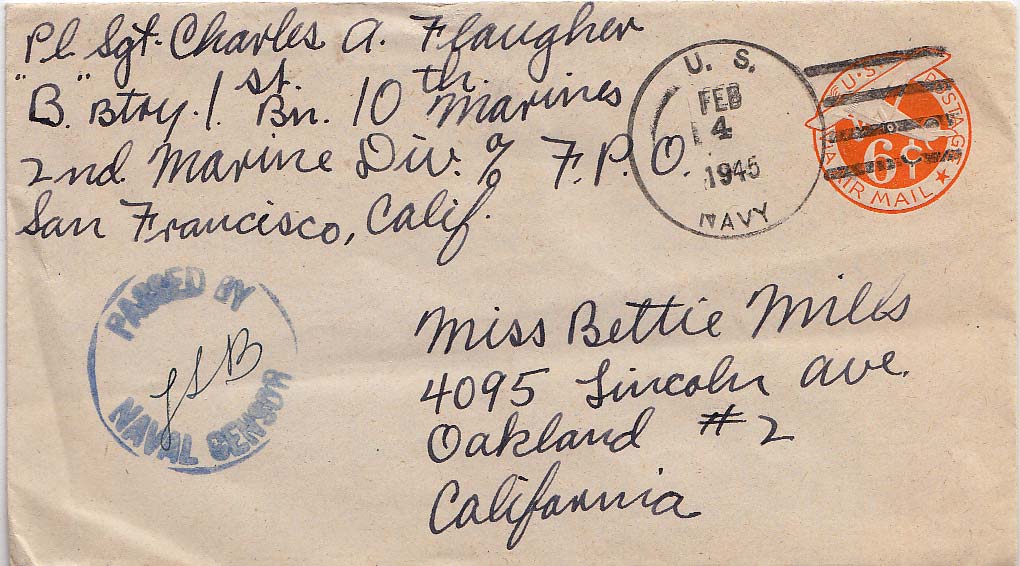 Pl. Sgt. Charles A. Flaugher
"B" Btry. 1st. Bn. 10th. Marines
2nd. Marine Div. % F.P.O.
San Francisco, Calif.
U. S.
FEB
4
1945
NAVY
U.S. POSTAGE
6¢
VIA AIR MAIL
PASSED BY
NAVAL CENSOR
Miss Bettie Mills
4095 Lincoln Ave.
Oakland #2
California